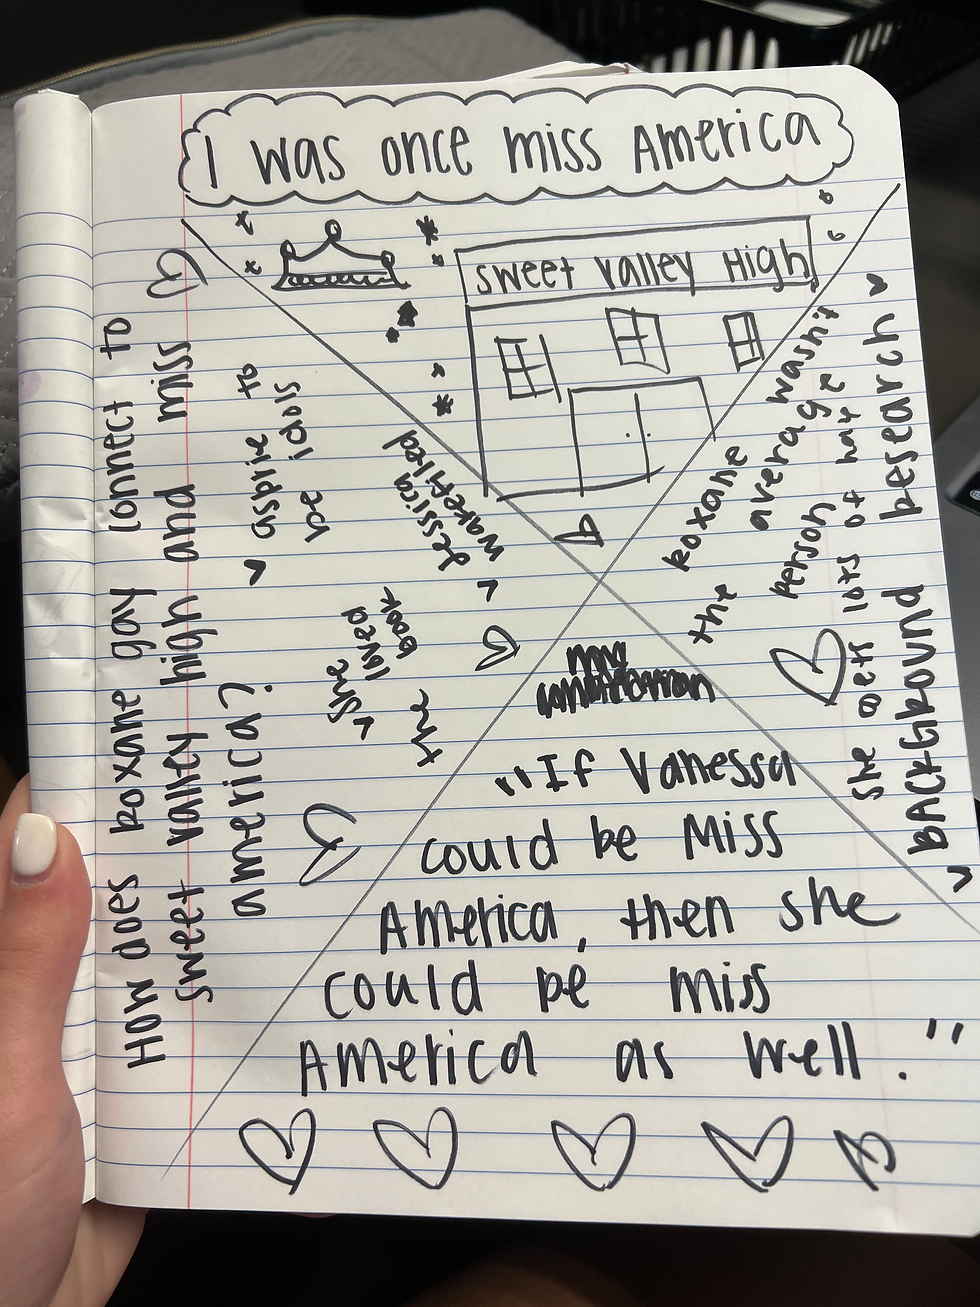 I was once miss America
Sweet Valley High
How does Roxane gay connect to
sweet valley high and miss
america?
aspire to
be idols
Jessica
wakefiled
she loved
the book
BACKGROUND Research
Roxane wasn't
the average
person
she gets lots of hate
"If Vanessa
could be Miss
America, then she
could be miss
America as well."